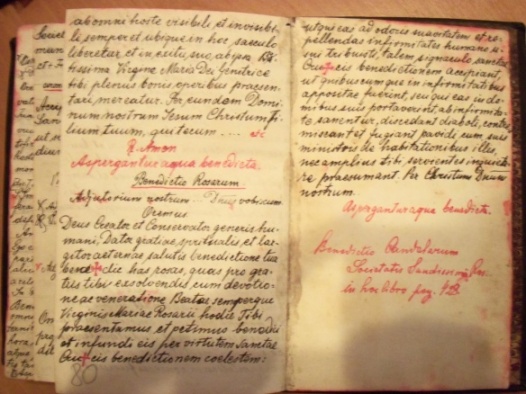 ab omni hoste visibili et invisibi-
li semper et ubique in hoc saeculo
liberetur et in exitu suo, ab ipsa Be-
tissima Virgine Maria Dei Genitrice
tibi plenus bonis operibus praesen-
tari, mereatur. Per eundem Domi-
num nostrum Jesum Christum fi-
lium tuum, qui tecum ....
R. Amen
Aspergantur aqua benedicta.
Benedictio Rosarum
Adjutorium nostrum. - Dnus vobiscum
Oremus
Deus Creator et Conservator generis hu-
mani, Dator gratiae, spiritualis et lar-
gitor aeternae salutis benedictione tua
bene✝dic has rosas, quas pro gra-
tiis tibi exsolvendis, cum devotio-
ne ac veneratione Beatae semperque
Virginis Mariae Rosarii hodie Tibi
praesentamus et petimus benedici
et infundi eis per virtutem Sanctae
Cru✝cis benedictionem coelestem:
80
ut qui eas ad odoris suavitatem et re-
pellendas infirmitates humano u-
sui tribuisti, talem signaculo sanctae
Cru✝cis benedictionem accipiant,
ut quibuscumque in infirmitatibus
appositae fuerint, seu qui eas in do-
mibus suis portaverint, ab infirmita-
te sanentur, discedant diaboli, contre-
miscant et fugiant pavidi cum suis
ministris de habitationibus illis,
nec amplius tibi servientes inquieta-
re praesumant. Per Christum Dnum
nostrum.
Aspergantur aqua benedicta.
Benedictio Candelarum
Societatis
in hoc libro pag.